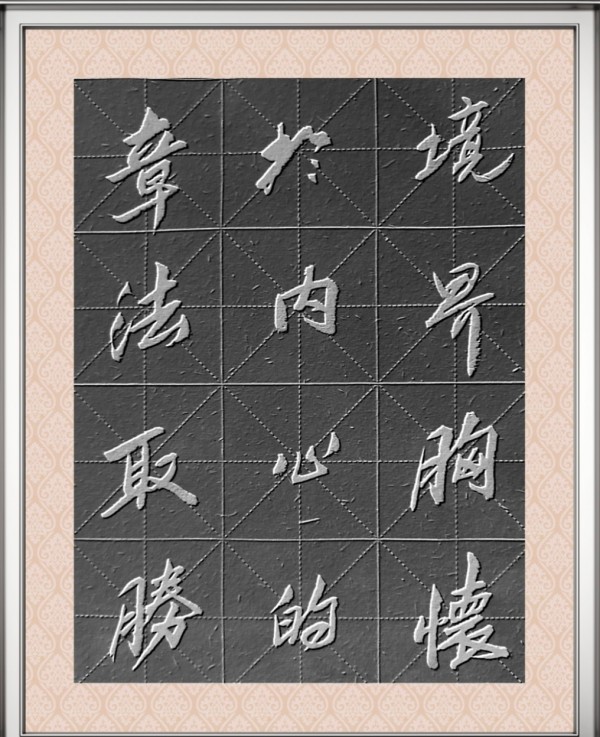 章法取勝
於内心的
境界胸懷